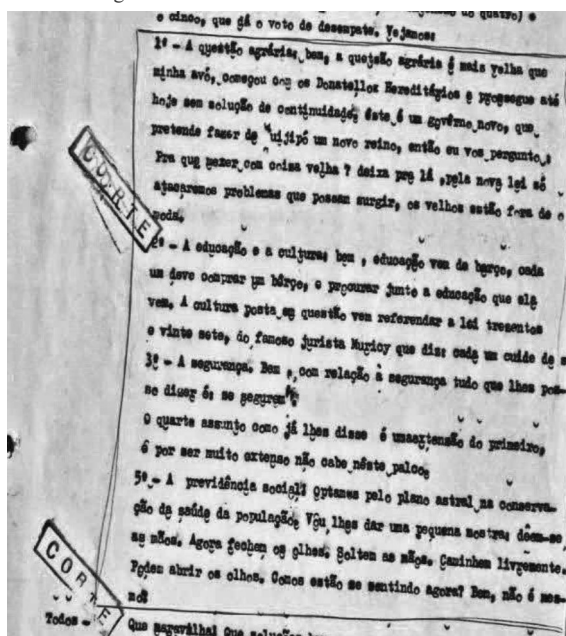 do quatro) e
e cinco, que dá o voto de desempate. Vejamos:
1º - A questão agrária; bem, a questão agrária é mais velha que
minha avó, começou com os Donatellos Hereditários e prossegue até
hoje sem solução de continuidade; êste é um govêrno novo, que
pretende fazer de Tuijipó um novo reino, então eu vos pergunto:
Pra que mexer com coisa velha ? deixa pra lá ,pela nova lei só
atacaremos problemas que possam surgir, os velhos estão fora de
moda.
2º - A educação e a cultura; bem , educação vem de barço, cada
um deve comprar um bârço, e procurar junto a educação que ele
vem. A cultura posta em questão vem referendar a lei trezentos
e vinte sete, do famoso jurista Muricy que diz: cada um cuide de s
3º - A segurança. Bem , com relação à segurança tudo que lhes pos-
so dizer é: se segurem
O quarto assunto como já lhes disse é umaextensão do primeiro,
é por ser muito extenso não cabe nêste palco.
5º - A previdência social: Optamos pelo plano astral na conserva-
ção da saúde da população. Vou lhes dar uma pequena mostra: dêem-se
as mãos. Agora fechem os olhos. Soltem as mãos. Caminhem livremente.
Podem abrir os olhos. Comos estão se sentindo agora? Bem, não é mes-
mo?
Todos - Que maravilha! Que
CORTE
CORTE